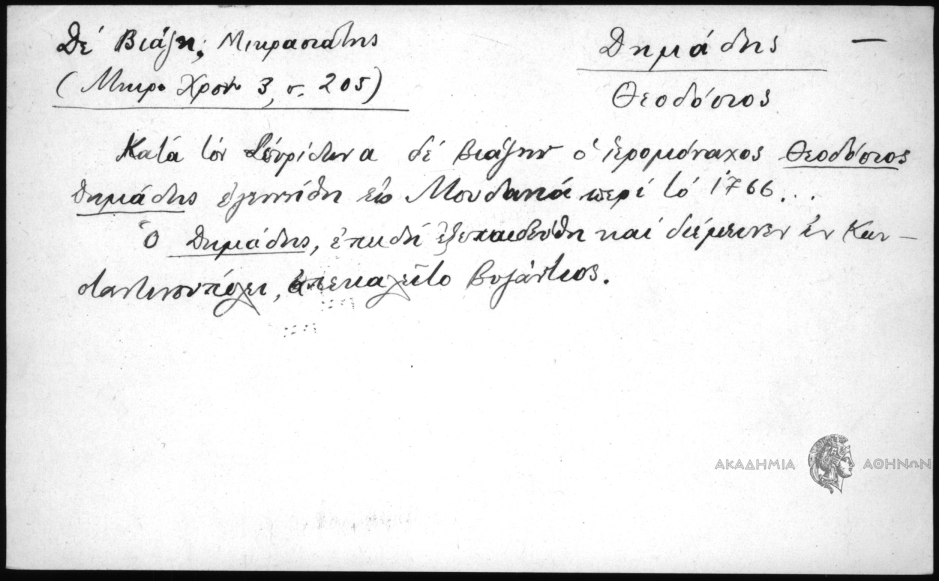 Δέ Βιάζη, Μικρασιάτης
(Μικρ. Χρον. 3, σ. 205)
Δημάδης —
Θεοδόσιος
Κατά τόν Σπυρίδωνα δέ Βιάζην ὁ ἱερομόναχος Θεοδόσιος
Δημάδης ἐγεννήθη εἰς Μουδανιά περί τό 1766...
Ὁ Δημάδης, ἐπειδή ἐξεπαιδεύθη καί διέμεινεν ἐν Κων-
σταντινουπόλει, ἀπεκαλεῖτο Βυζάντιος.
ΑΚΑΔΗΜΙΑ ΑΘΗΝΩΝ